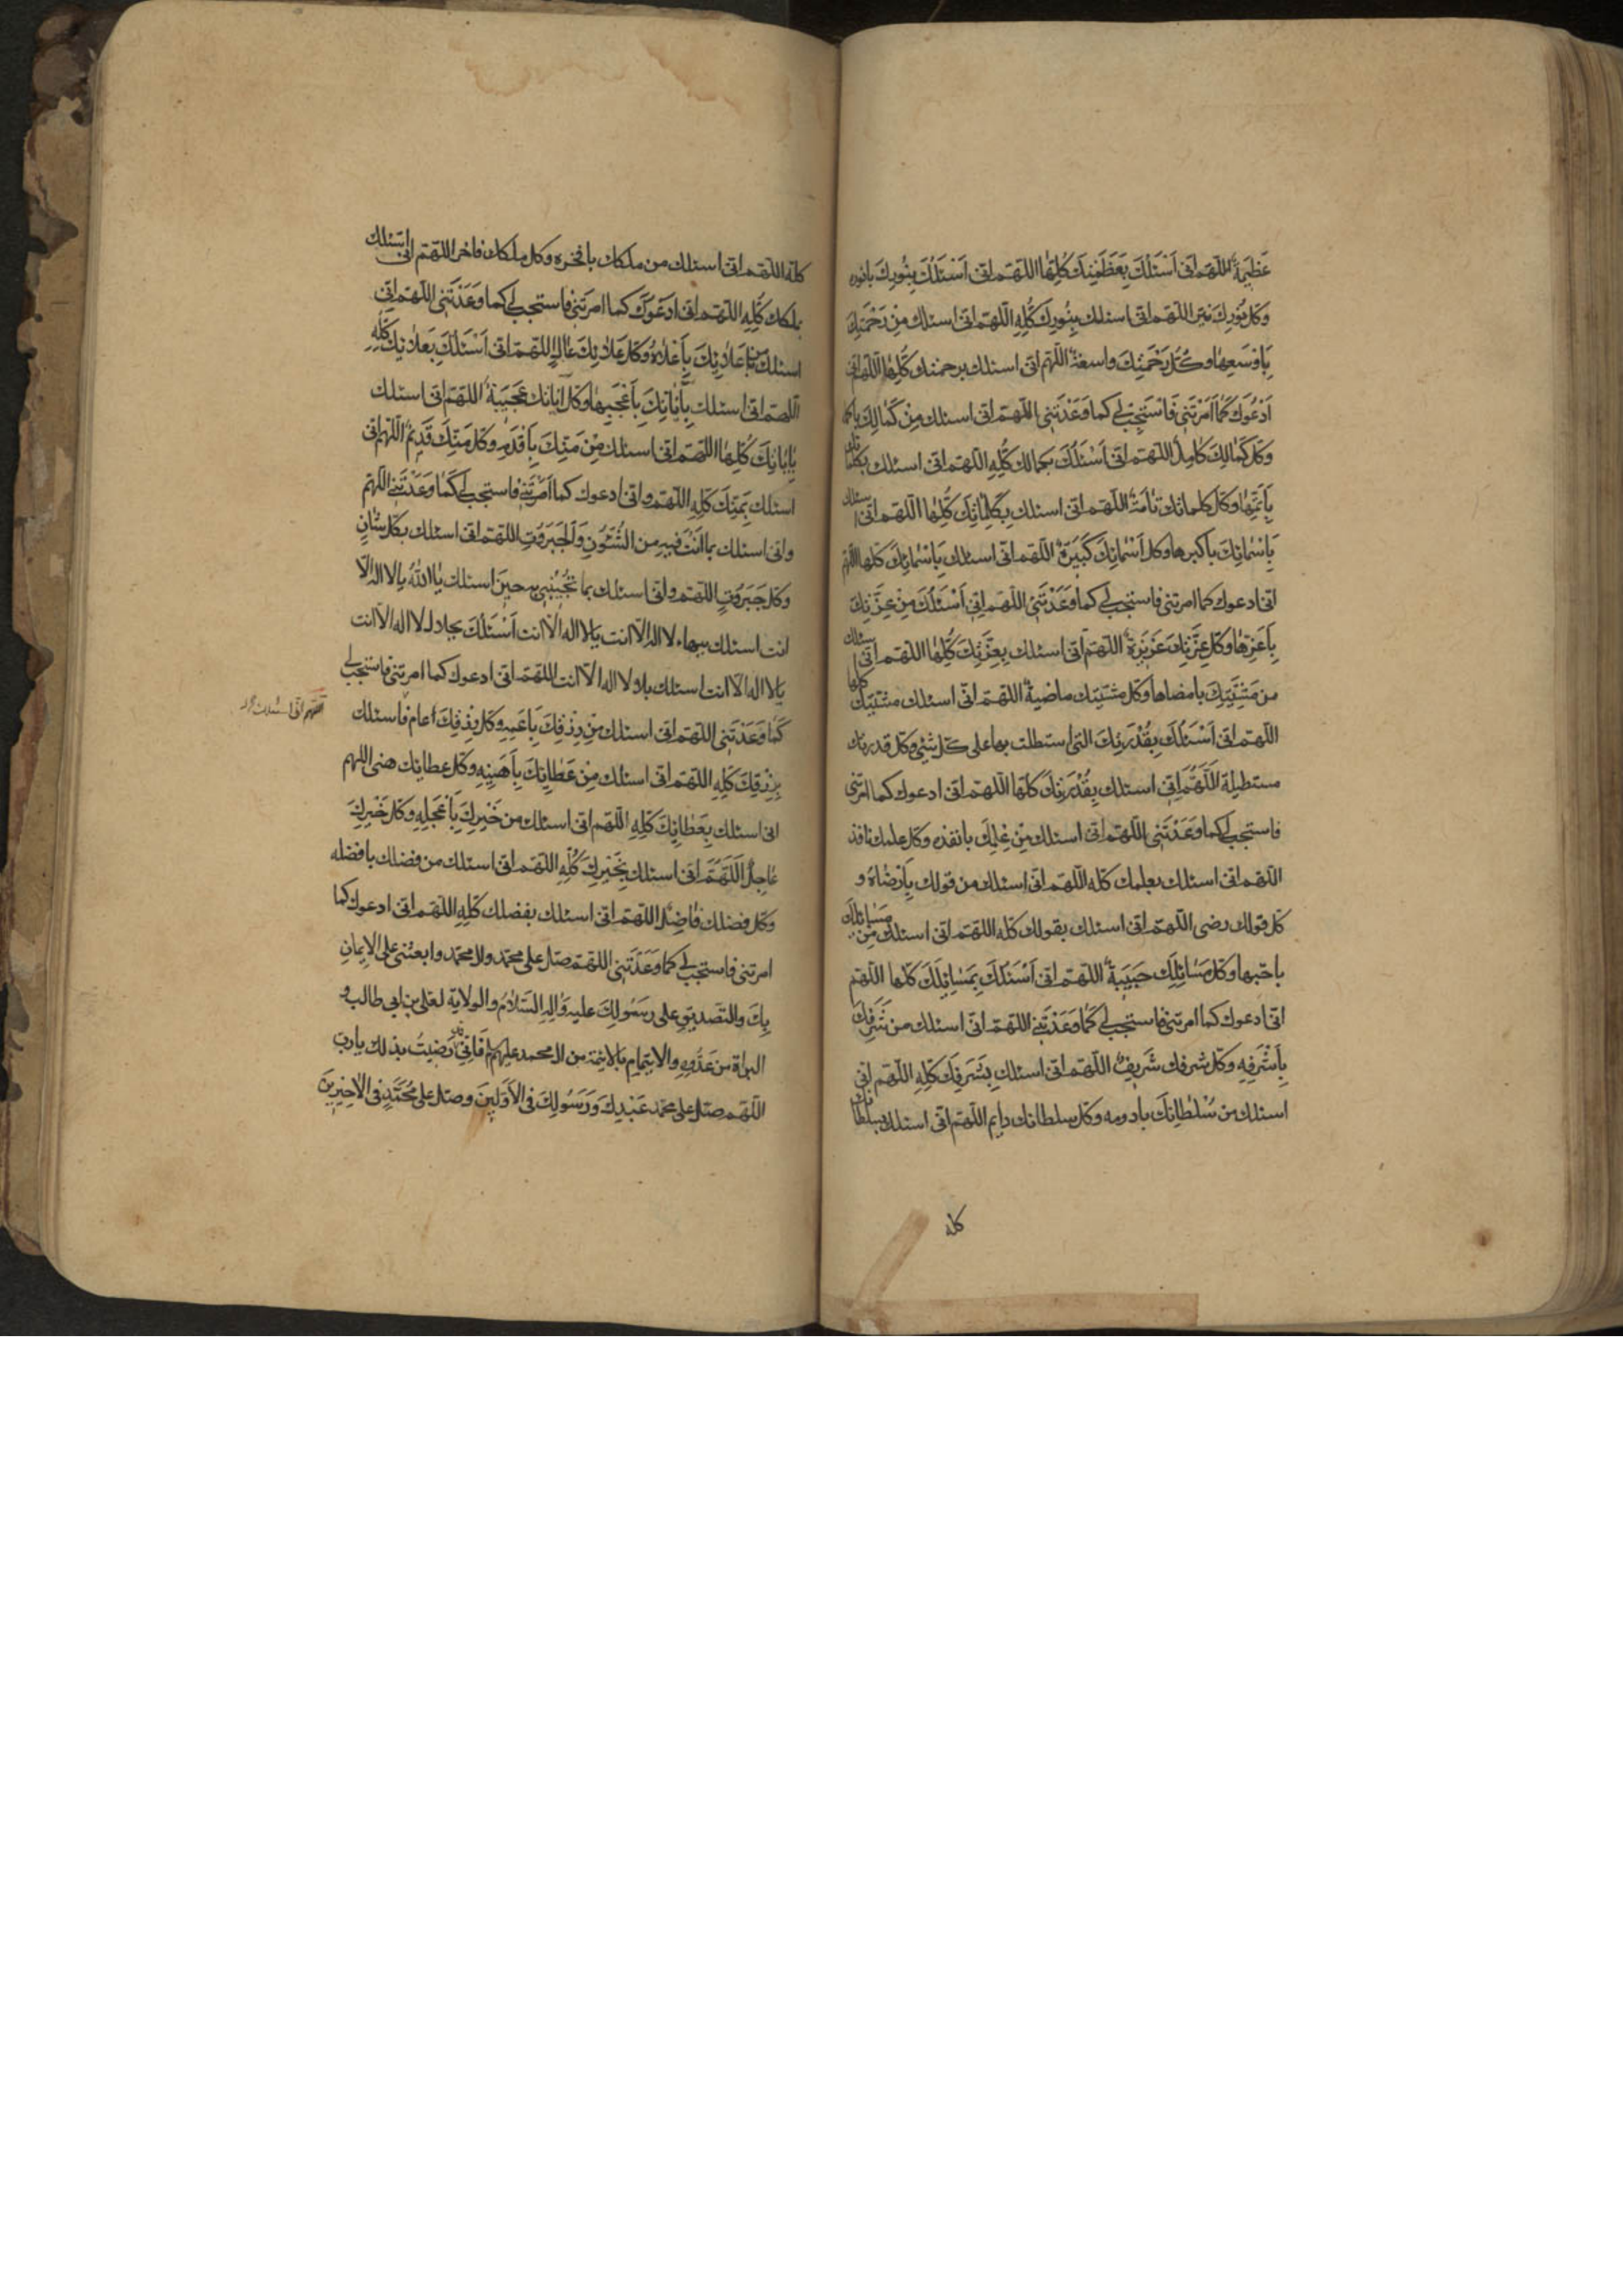 عَظِيمَةٌ اَللّهُمَّ اِنّى اَسْئَلُكَ بِعَظَمَتِكَ كُلِّهٰا اللّهمّ انّى اَسْئَلُكَ بِنُورِكَ بانوره
وَكلّ نُورِكَ نيّر اللّهمّ انّى اسئلك بِنُورِكَ كُلِّهِ اللّهمّ انّى اسئلك مِنْ رَحْمَتِكَ
بِاَوْسَعِهٰا وَكُلّ رَحْمَتِكَ واسعة اللّهمّ انّى اسئلك برحمتك كُلِّهٰا اللّهمّ انّى
اَدْعُوكَ كَمٰا اَمَرْتَنى فَاسْتَجِبْ لى كما وَعَدْتَنى اللّهمّ انّى اسئلك مِنْ كَمٰالِكَ باكمله
وَكلّ كَمٰالِكَ كٰامِلٌ اللّهمّ انّى اَسْئَلُكَ بكمالك كُلِّهِ اللّهمّ انّى اسئلك بكلماتك
بِاَتَمِّهٰا وَكلّ كلماتك تٰامّةٌ اللّهمّ انّى اسئلك بِكَلِمٰاتِكَ كُلِّهٰا اللّهمّ انّى اسئلك
بِاَسْمٰائِكَ باكبرها وكل اَسْمٰائِكَ كَبيرَةٌ اللّهمّ انّى اسئلك بِاَسْمٰائِكَ كلّها اللّهمّ
انّى ادعوك كما امرتنى فاستجب لى كما وَعَدْتَنى اللّهمّ اِنّى اَسْئَلُكَ مِنْ عِزَّتِكَ
بِاَعَزِّهٰا وَكلّ عِزَّتِكَ عَزيزَةٌ اللّهمّ انّى اسئلك بِعِزَّتِكَ كُلِّهٰا اللّهمّ انّى اسئلك
من مَشِيَّتِكَ بامضاها وكلّ مشيّتك ماضيةٌ اللّهمّ انّى اسئلك مشيّتك كلها
اللّهمّ انّى اَسْئَلُكَ بِقُدْرَتِكَ التى استطلت بها على كلّ شئ وكلّ قدرتك
مستطيلة اَللّهُمَّ اِنّى اسئلك بِقُدْرَتِكَ كلّها اللّهمّ انّى ادعوك كما امرتنى
فاستجب لى كما وَعَدْتَنى اللّهمّ انّى اسئلك مِنْ عِلْمِكَ بانفذه وكلّ علمك نافذ
اللّهمّ انّى اسئلك بعلمك كلّه اللّهمّ انّى اسئلك من قولك بِاَرْضٰاهُ و
كلّ قولك رضى اللّهمّ انّى اسئلك بقولك كلّه اللّهمّ انّى اسئلك مِنْ مَسٰائِلِكَ
باحبّها وكلّ مَسٰائِلِكَ حَبيبَةٌ اللّهمّ انّى اَسْئَلُكَ بِمَسٰائِلِكَ كلّها اللّهمّ
انّى ادعوك كما امرتنى فاستجب لى كَمٰا وَعَدْتَنى اللّهمّ انّى اسئلك من شَرَفِكَ
بِاَشْرَفِهِ وكلّ شرفك شَريفٌ اللّهمّ انّى اسئلك بِشَرَفِكَ كلّهِ اللّهمّ انّى
اسئلك من سُلْطٰانِكَ بادومه وكلّ سلطانك دايم اللّهمّ انّى اسئلك بسلطانك
كله
كلّه اللّهمّ انّى اسئلك من ملكك بافخره وكل ملكك فاخر اللّهمّ انى اسئلك
بملكك كُلِّهِ اللّهمّ انّى ادعوك كما امرتنى فاستجب لى كما وَعَدْتَنى اللّهمّ انّى
اسئلك من عَلائِكَ بِاَعْلاهُ وَكلّ عَلائِكَ عٰالٍ اللّهمّ انّى اَسْئَلُكَ بِعَلائِكَ كُلِّهِ
اللّهمّ انّى اسئلك بِاٰيٰاتِكَ بِاَعْجَبِهٰا وكلّ اٰياتك عَجيبَةٌ اللّهمّ انّى اسئلك
بِاٰيٰاتِكَ كُلِّهٰا اللّهمّ انّى اسئلك مِنْ مَنِّكَ بِاَقْدَمِهِ وكلّ مَنِّكَ قَديمٌ اللّهمّ انّى
اسئلك بِمَنِّكَ كُلِّهِ اللّهمّ وانّى ادعوك كما اَمَرْتَنى فاستجب لى كَمٰا وَعَدْتَنى اللّهمّ
وانّى اسئلك بما اَنْتَ فيهِ من الشُّئُونِ وَالْجَبَرُوتِ اللّهمّ انّى اسئلك بكلّ شٰانٍ
وكلّ جَبَرُوتٍ اللّهمّ وانّى اسئلك بما تُجيبُنى به حينَ اسئلك يٰا اَللّهُ يا لا اله الّا
انت اسئلك ببهاء لا اله الّا انت يا لا اله الّا انت اَسْئَلُكَ بجلال لا اله الّا انت
يا لا اله الّا انت اسئلك بلا اله الّا انت اللّهمّ انّى ادعوك كما امرتنى فاستجب لى
كَمٰا وَعَدْتَنى اللّهمّ انّى اسئلك مِنْ رِزْقِكَ بِاَعَمِّهِ وَكلّ رِزْقِكَ عامّ اسئلك
بِرِزْقِكَ كُلِّهِ اللّهمّ انّى اسئلك مِنْ عَطٰائِكَ بِاَهْنَئِهِ وكلّ عطائك هنى اللهم
انى اسئلك بِعَطٰائِكَ كُلِّهِ اللّهمّ انّى اسئلك من خَيْرِكَ بِاَعْجَلِهِ وكلّ خَيْرِكَ
عٰاجِلٌ اَللّهُمَّ اِنّى اسئلك بِخَيْرِكَ كُلِّهِ اللّهمّ انّى اسئلك من فضلك بافضله
وكلّ فضلك فٰاضِلٌ اللّهمّ انّى اسئلك بفضلك كُلِّهِ اللّهمّ انّى ادعوك كما
امرتنى فاستجب لى كما وَعَدْتَنى اللّهمّ صلّ على محمّد وال محمّد وابعثنى على الايمانِ
بِكَ والتّصديقِ على رَسُولِكَ عليه وَاٰلِهِ السَّلامُ والولاية لعلىّ بن ابى طالب و
البراة من عَدُوِّهِ والايتمامِ بالائمّة من ال محمد عليهم فَاِنّى قد رَضيتُ بذلك يارب
اللّهمّ صلّ على محمّد عَبْدِكَ وَرَسُولِكَ فى الاَوَّلينَ وصلّ على مُحَمَّدٍ فى الاٰخِرينَ